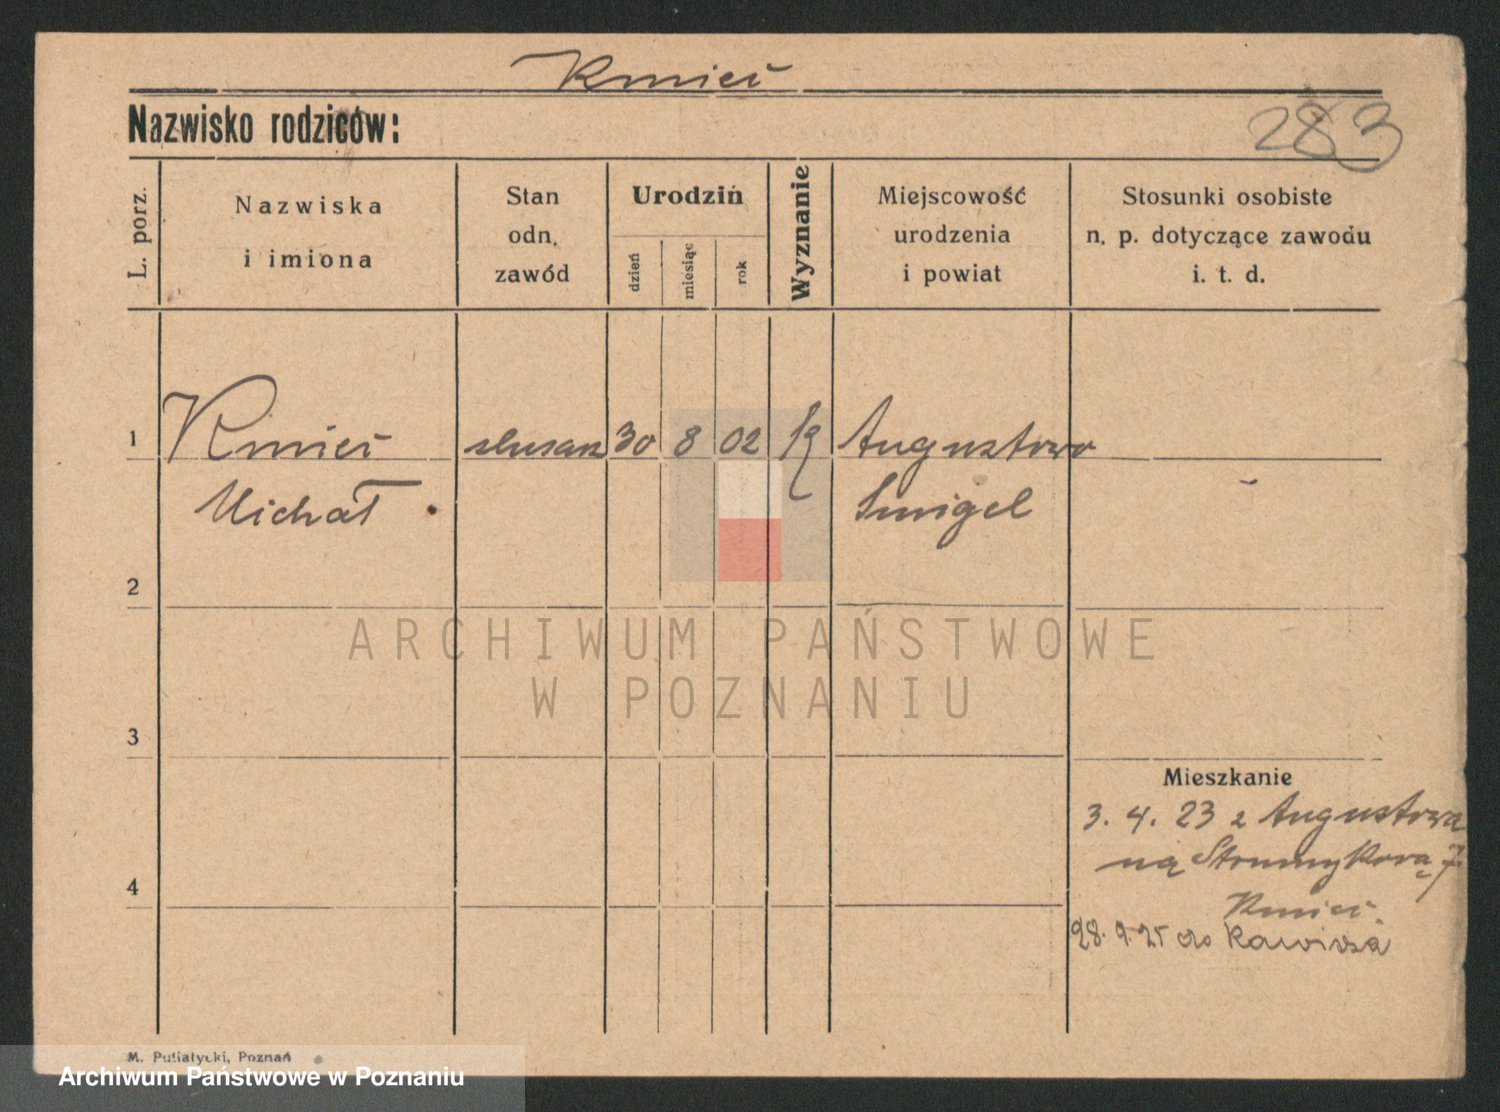 Kmieć
Nazwisko rodziców:
283
L. porz.
Nazwiska
i imiona
Stan
odn.
zawód
Urodziń
dzień
miesiąc
rok
Wyznanie
Miejscowość
urodzenia
i powiat
Stosunki osobiste
n. p. dotyczące zawodu
i. t. d.
1 Kmieć ślusarz 30 8 02 K Augustowo
Michał Smigel
2
3
4
ARCHIWUM PAŃSTWOWE
W POZNANIU
Mieszkanie
3. 4. 23 z Augustowa
na 7
Kmieć
28. 9. 25 do
M. Putiatycki, Poznań
Archiwum Państwowe w Poznaniu